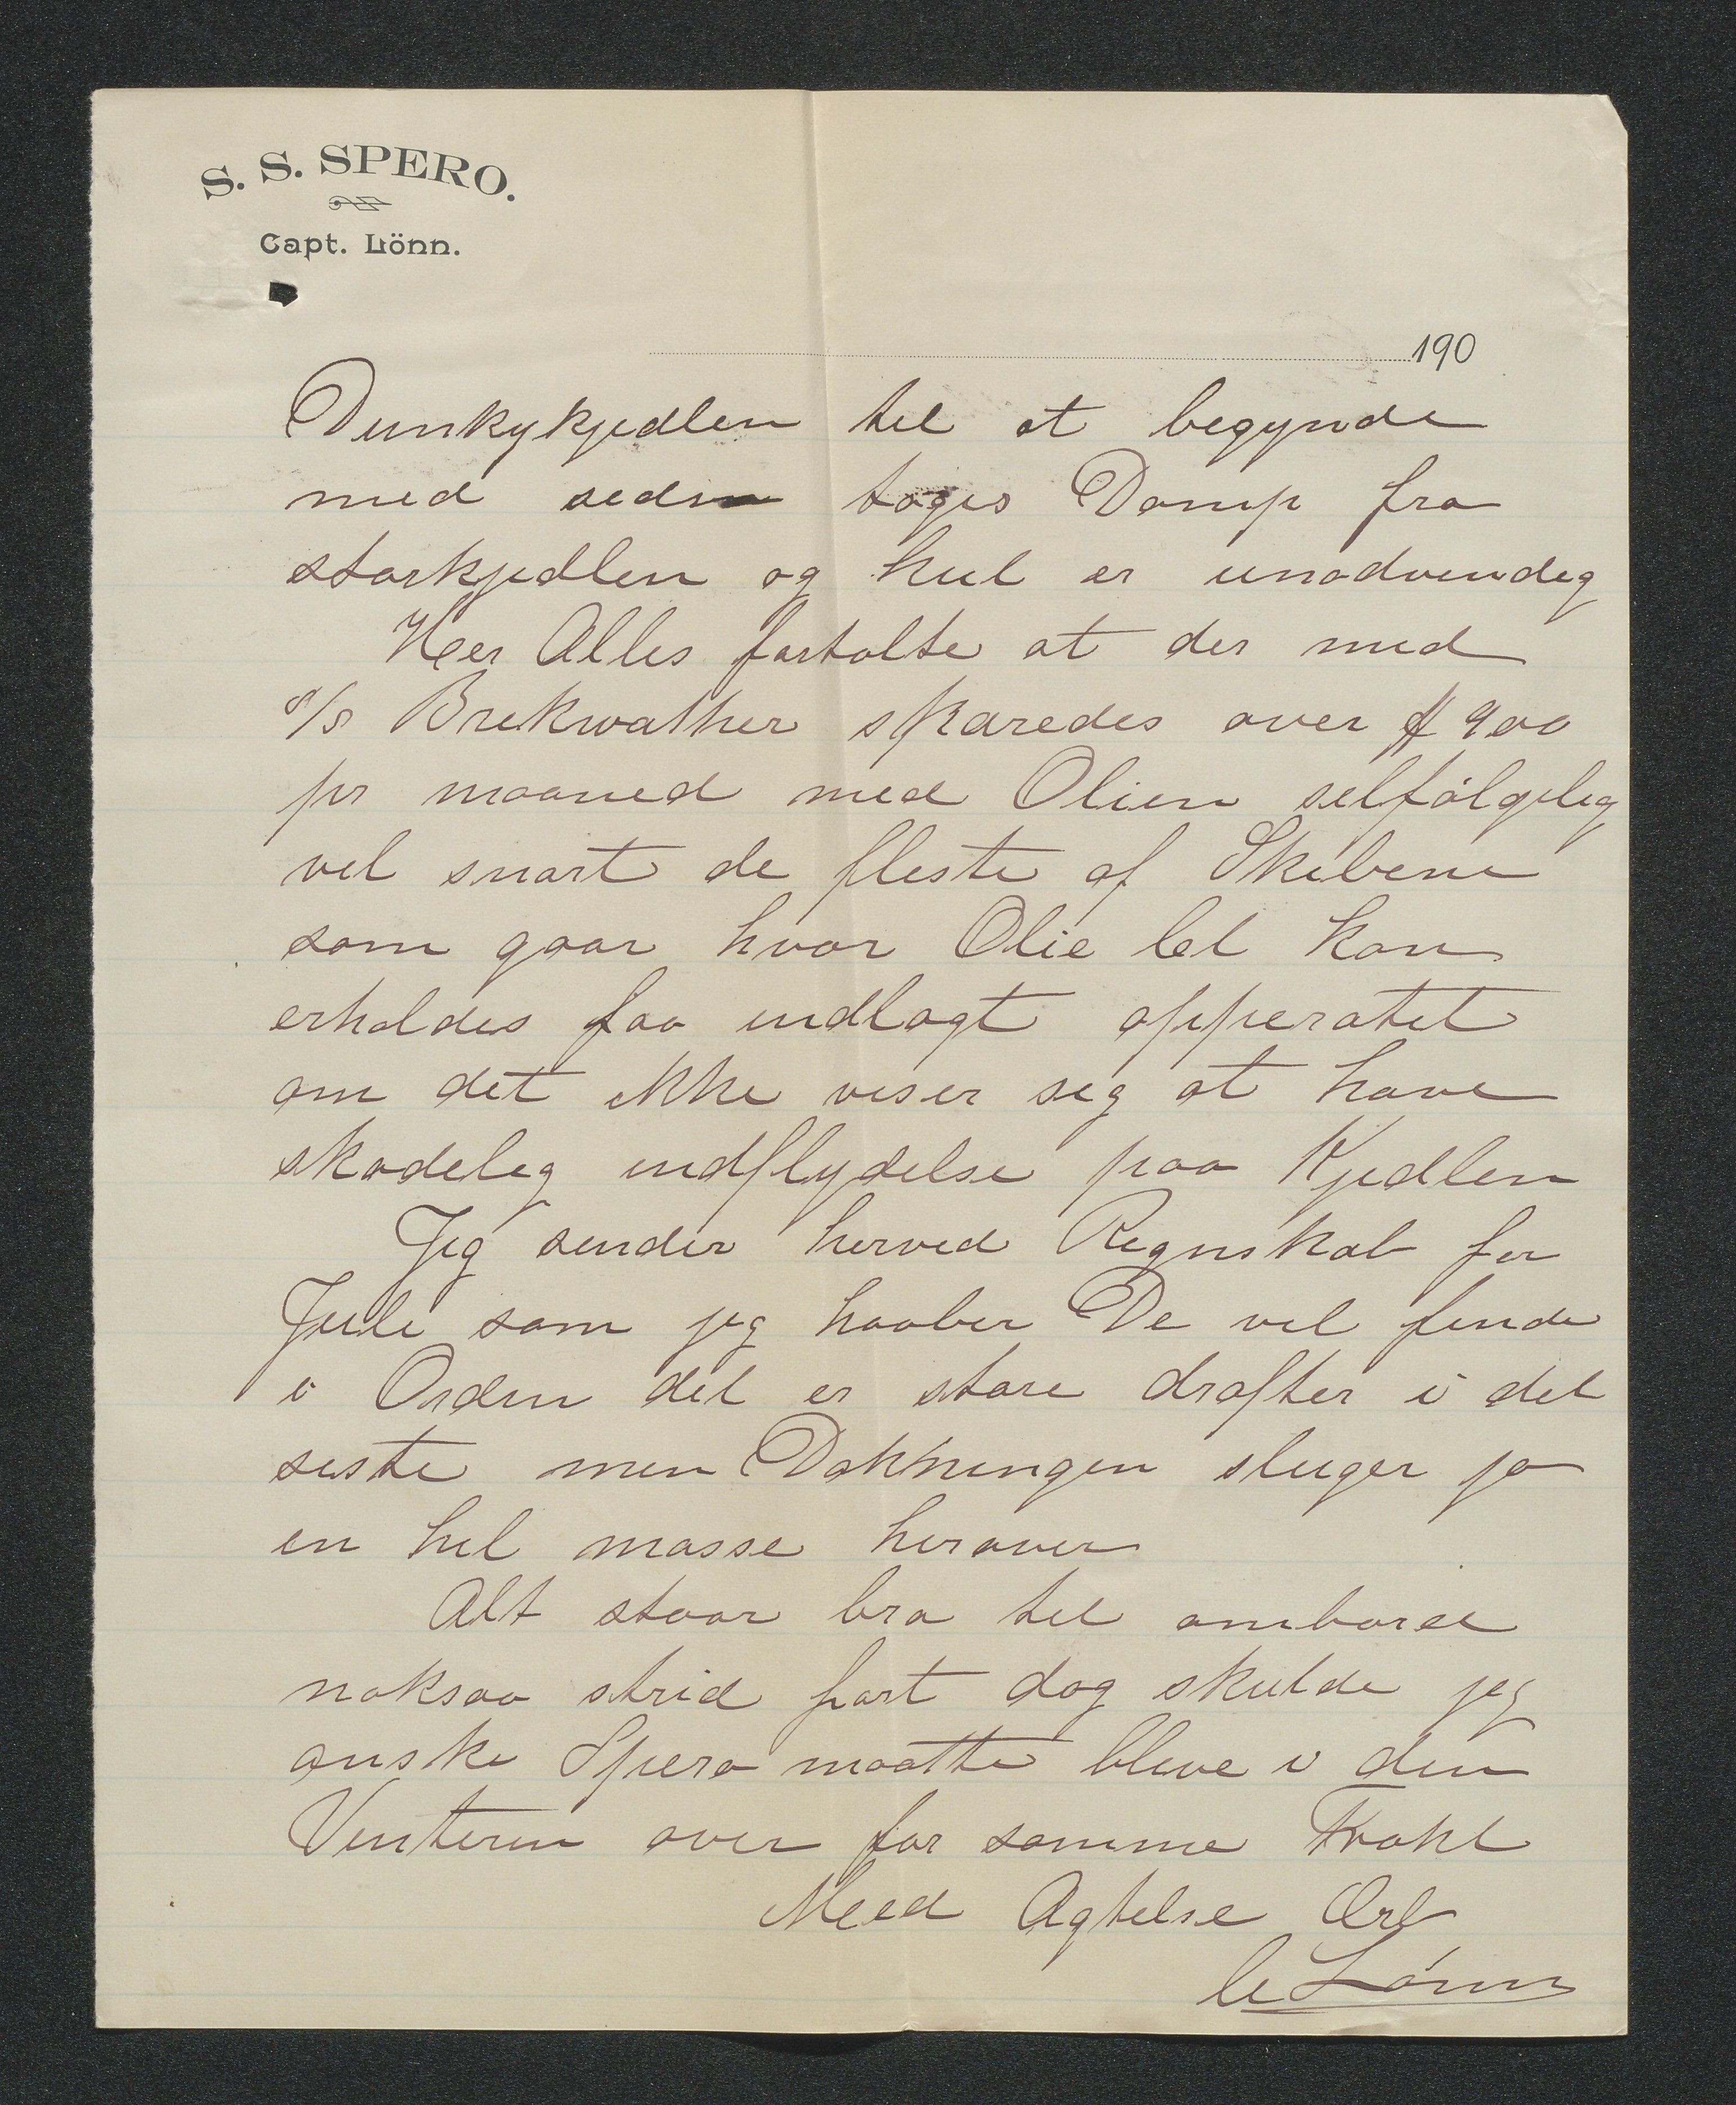 S. S. SPERO.
Capt. Lönn.
190
Dunkykjedlen til at begynde
med seden toges Damp fra
storkjedlen og kul er unødvendig
Her Alles fortalte at der med
s/s Brekwather sparedes over $ 900
pr maaned med Olien selfølgelig
vil snart de fleste af Skibene
som gaar hvor Olie let kan
erholdes faa indlagt apperatet
om det ikke viser sig at have
skadelig indflydelse paa Kjedlen
Jeg sender herved Regnskab for
Juli som jeg haaber De vil finde
i Orden det er store drafter i det
siste men Dokningen sluger ja
en hel masse herover
Alt staar bra til ombord
noksaa strid fart dog skulde jeg
ønske Spero maatte blive i den
Vinteren over for samme Frakt
Med Agtelse Erb
C Lönn